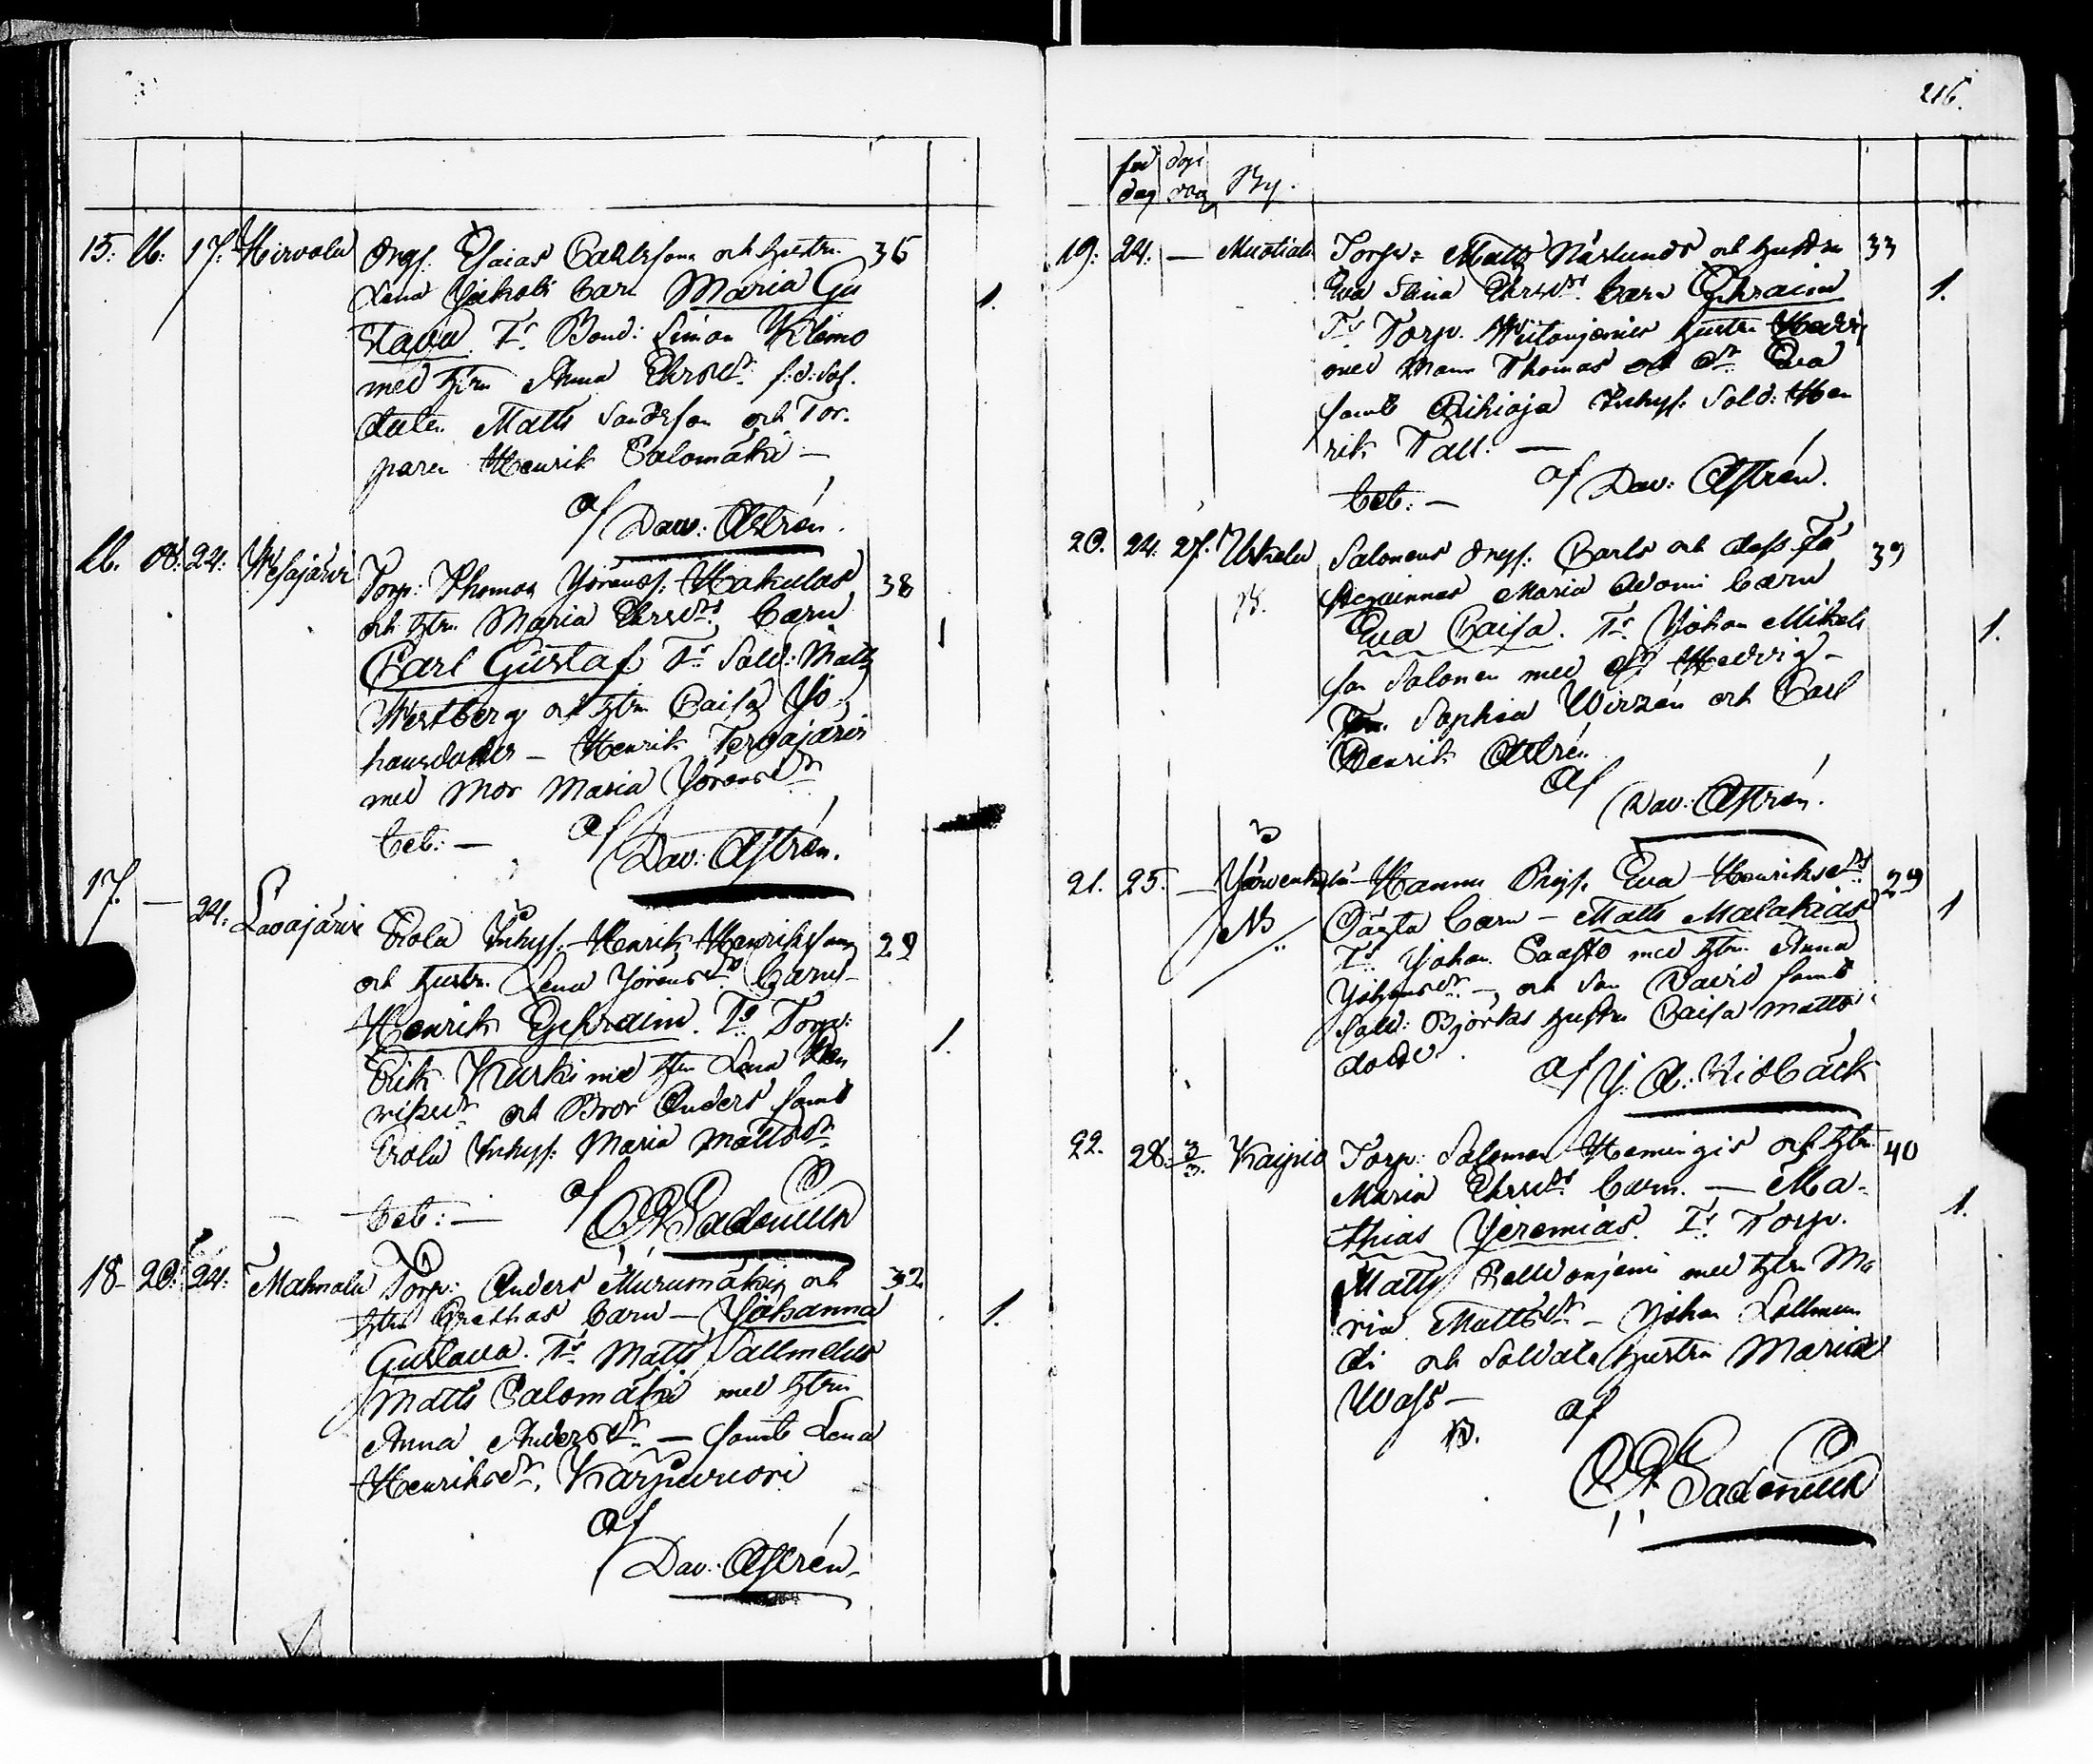 15. 16. 17. Hirvola Drg. Esaias Carlsson och hustru 35
Lena Jakobs barn Maria Gu
stava. Ts Bond: Simon Klemo
med htru Anna Chrsdr. f: d: Sol.
daten Matts Sanderson och Tor-
paren Henrik Salomäki —
af Dav: Astrén.
16. 18: 24: Wesajärvi Torp: Thomas Jöranss. Hakulas 38
och htru Maria Chrsdrs barn 1
Carl Gustaf Ts Sold: Matts
Westberg och htru Caisa Jo-
hansdotter — Henrik Tervajärvi
med Mor Maria Jöransdr
bet: — af Dav: Astrén.
17. — 24. Lavajärvi Erola Inhys. Henrik Henrikssons 29
och hustru Lena Jöransdrs barn
Henrik Ephraim. Ts Torp: 1.
Erik Kurki med htru Lena Hen
riksdr och Bror Anders samt
Erola Inhys: Maria Mattsdr
bet: — af Sadenius
18 20: 24: Mahnala Torp: Anders Murumäkis och 32
htru Grethas barn — Johanna 1.
Gustava. Ts Matts Sallmelus
Matts Salomäki med htru
Anna Andersdr. — samt Lena
Henriksdr. Kärpivuori
af Dav: Astrén
216.
föd dag döpe dag By.
19. 24. — Muotiala Torp: Matts Näslunds och hustru 33
Eva Stina Chrsdrs barn Ephraim 1.
Ts Torp. hustru Hedvig
med Mann Thomas och dr Eva
samt Riihioja Inhys: Sold: Hen
rik Tall. —
bet: — af Dav: Astrén.
20. 24. 27. Uskela Salomens drg: Carls och dess Fä 39
steqvinnas Maria Adami barn
Eva Caisa. Ts Johan Mikels 1.
son Salonen med dr Hedvig —
Sophia Wirzén och Carl
Henrik Astrén
af Dav: Astrén.
21. 25. — Järvenkylä Hannu Pig. Eva Henriksdrs 29
NB Oägta barn — Matts Malakias 1
Ts Johan Saasto med htru Anna
Johansdr —, och Son David samt
Sold: Björks hustru Caisa Matts
dotter. af J. A. Kidbäck
22. 28. 3/3. Kaipio Torp: Salomon Hemingis och htru 40
Maria Chrsdrs barn. — Ma- 1.
thias Jeremias. Ts Torp.
Matts Sellvonjemi med htru Ma
ria Mattsdr — Johan Lollmun
di och Soldats hustru Maria
Wass —
af
Sadenius